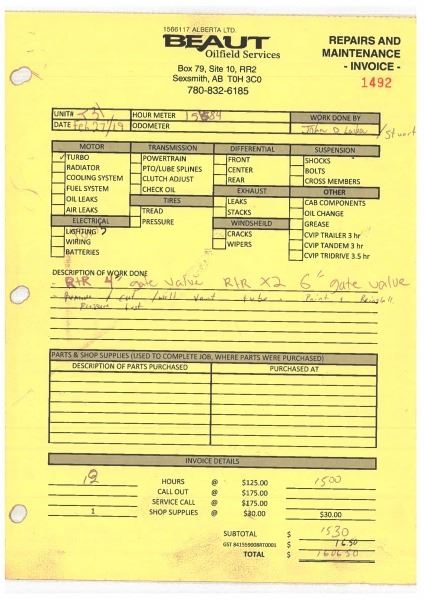 1566117 ALBERTA LTD.
BEAUT
Oilfield Services
Box 79, Site 10, RR2
Sexsmith, AB T0H 3C0
780-832-6185
REPAIRS AND
MAINTENANCE
- INVOICE -
1492
UNIT# J31 HOUR METER WORK DONE BY
DATE Feb 27/19 ODOMETER John D / Stuart
MOTOR TRANSMISSION DIFFERENTIAL SUSPENSION
✓ TURBO POWERTRAIN FRONT SHOCKS
RADIATOR PTO/LUBE SPLINES CENTER BOLTS
COOLING SYSTEM CLUTCH ADJUST REAR CROSS MEMBERS
FUEL SYSTEM CHECK OIL EXHAUST OTHER
OIL LEAKS TIRES LEAKS CAB COMPONENTS
AIR LEAKS TREAD STACKS OIL CHANGE
ELECTRICAL PRESSURE WINDSHEILD GREASE
LIGHTING CRACKS CVIP TRAILER 3 hr
WIRING WIPERS CVIP TANDEM 3 hr
BATTERIES CVIP TRIDRIVE 3.5 hr
DESCRIPTION OF WORK DONE
- R+R 4" gate valve R+R x2 6" gate valve
- Remove / cut / weld vent tube - Paint & Reinstall
Pressure test
PARTS & SHOP SUPPLIES (USED TO COMPLETE JOB, WHERE PARTS WERE PURCHASED)
DESCRIPTION OF PARTS PURCHASED PURCHASED AT
INVOICE DETAILS
12 HOURS @ $125.00 1500
CALL OUT @ $175.00
SERVICE CALL @ $175.00
1 SHOP SUPPLIES @ $30.00 $30.00
SUBTOTAL $ 1530
GST 841569008RT0001 $ 76.50
TOTAL $ 1606.50